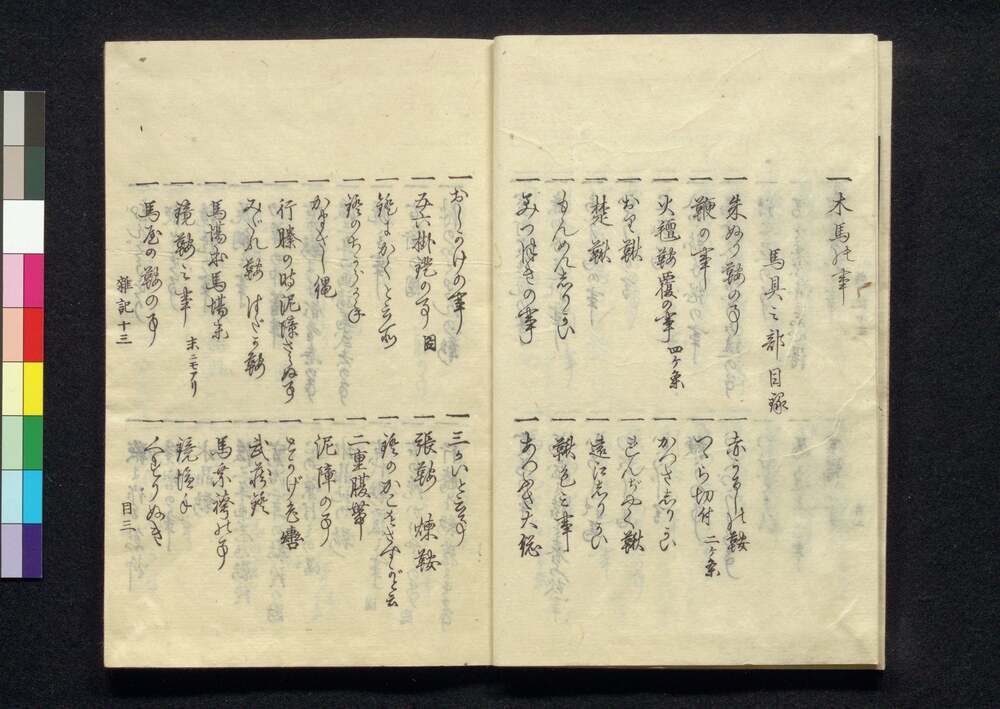 一 木馬の事
馬具之部目録
一 朱ぬり鞍の事
一 赤うるしの鞍
一 鞭の事
一 つくら切付 二ケ条
一 火氈鞍覆の事 四ケ条
一 かつさしりかひ
一 おり鞦
一 れんぢやく鞦
一 楚鞦
一 遠江しりかひ
一 もんめんしりかひ
一 鞦色之事
一 みつほきの事
一 あつふさ大総
一 おしかけの事
一 三かいと云事
一 五六掛鐙の事 図
一 張鞍 煉鞍
一 鐙にかくと云所
一 鐙のかこをさすがと云
一 鐙のちからかは
一 二重腹帯
一 かなさし縄
一 泥障の事
一 行縢の時泥障さゝぬ事
一 とかげ色轡
一 みくれ鞍 はたか鞍
一 武蔵鐙
一 馬場末馬場本
一 馬乗袴の事
一 鏡鞍之事 末ニモアリ
一 鏡
一 馬屋の鞍の事
一 くすりぬき
雑記十三
目三